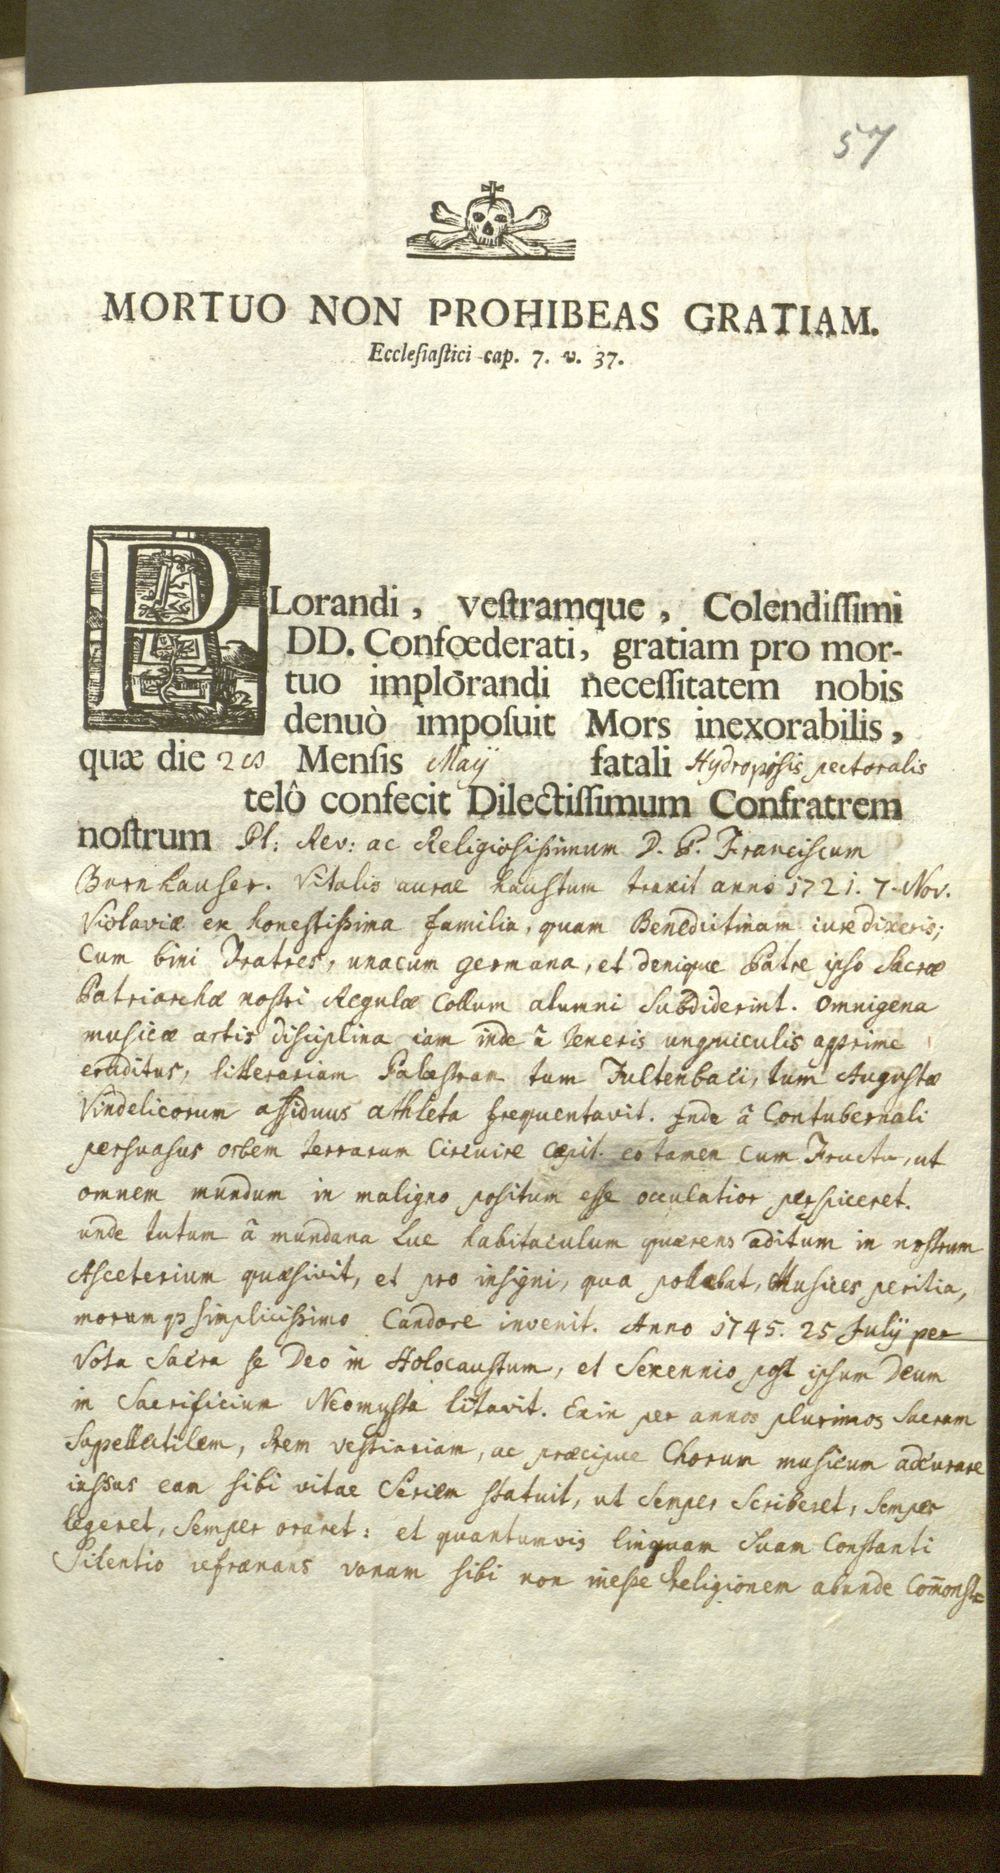 57
MORTUO NON PROHIBEAS GRATIAM.
Ecclesiastici cap. 7. v. 37.
PLorandi, vestramque, Colendissimi
DD. Confœderati, gratiam pro mor-
tuo implorandi necessitatem nobis
denuò imposuit Mors inexorabilis,
quæ die Mensis Maÿ fatali Hydropisis pectoralis
telô confecit Dilectissimum Confratrem
nostrum Pl: Rev: ac Religiosissimum D. P. Franciscum
Bornhauser. Vitalis aurae haustum traxit anno 1721. 7. Nov.
Violaviæ ex honestissima familia, quam Benedictinam iure dixeris;
Cum bini Fratres, unacum germana, et denique Patre ipso Sacræ
Patriarchæ nostri Regulæ Collum alumni Subdiderint. Omnigena
musicæ artis disciplina iam inde â teneris unguiculis apprime
eruditus, litterariam Palæstram tum Fultenbaci, tum Augustæ
Vindelicorum assiduus athleta frequentavit. Inde â Contubernali
persuasus orbem terrarum Circuire cæpit. eo tamen Cum Fructu, ut
omnem mundum in maligno positum esse occulatior perspiceret.
unde tutum â mundana lue habitaculum quærens aditum in nostrum
Asceterium quæsivit, et pro insigni, qua pollebat, Musices peritia,
morumqȝ simplicissimo Candore invenit. Anno 1745. 25 Julÿ per
Vota Sacra se Deo in Holocaustum, et Sexennio post ipsum Deum
in Sacrificium Neomysta litavit. Exin per annos plurimos Sacram
Supellectilem, Rem vestiariam, ac præcipue Chorum musicum adcurare
iussus eam sibi vitae Seriem statuit, ut Semper Scriberet, Semper
legeret, Semper oraret: et quantumvis linguam Suam Constanti
Silentio refrænans vanam sibi non inesse Religionem abunde Com̄onst=